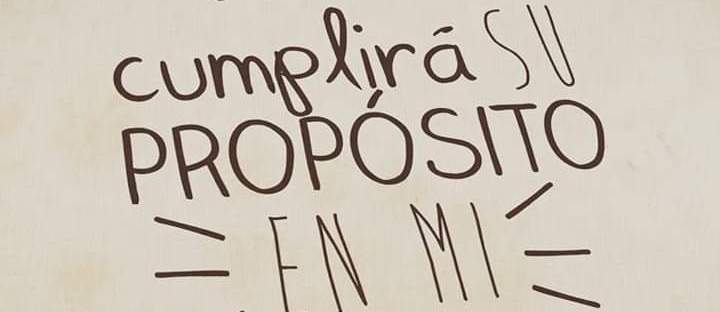 cumplirá SU
PROPÓSITO
EN MI